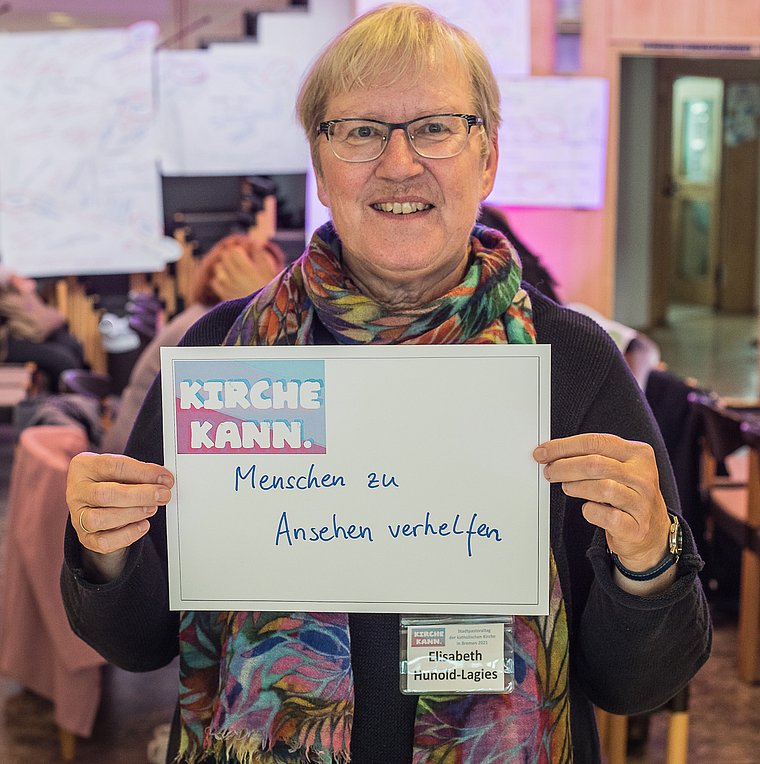 KIRCHE
KANN.
Menschen zu
Ansehen verhelfen
KIRCHE
KANN.
Stadtpastoraltag
der katholischen Kirche
in Bremen 2021
Elisabeth
Hunold-Lagies